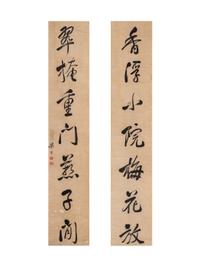 香浮小院梅花放
翠掩重門燕子閒